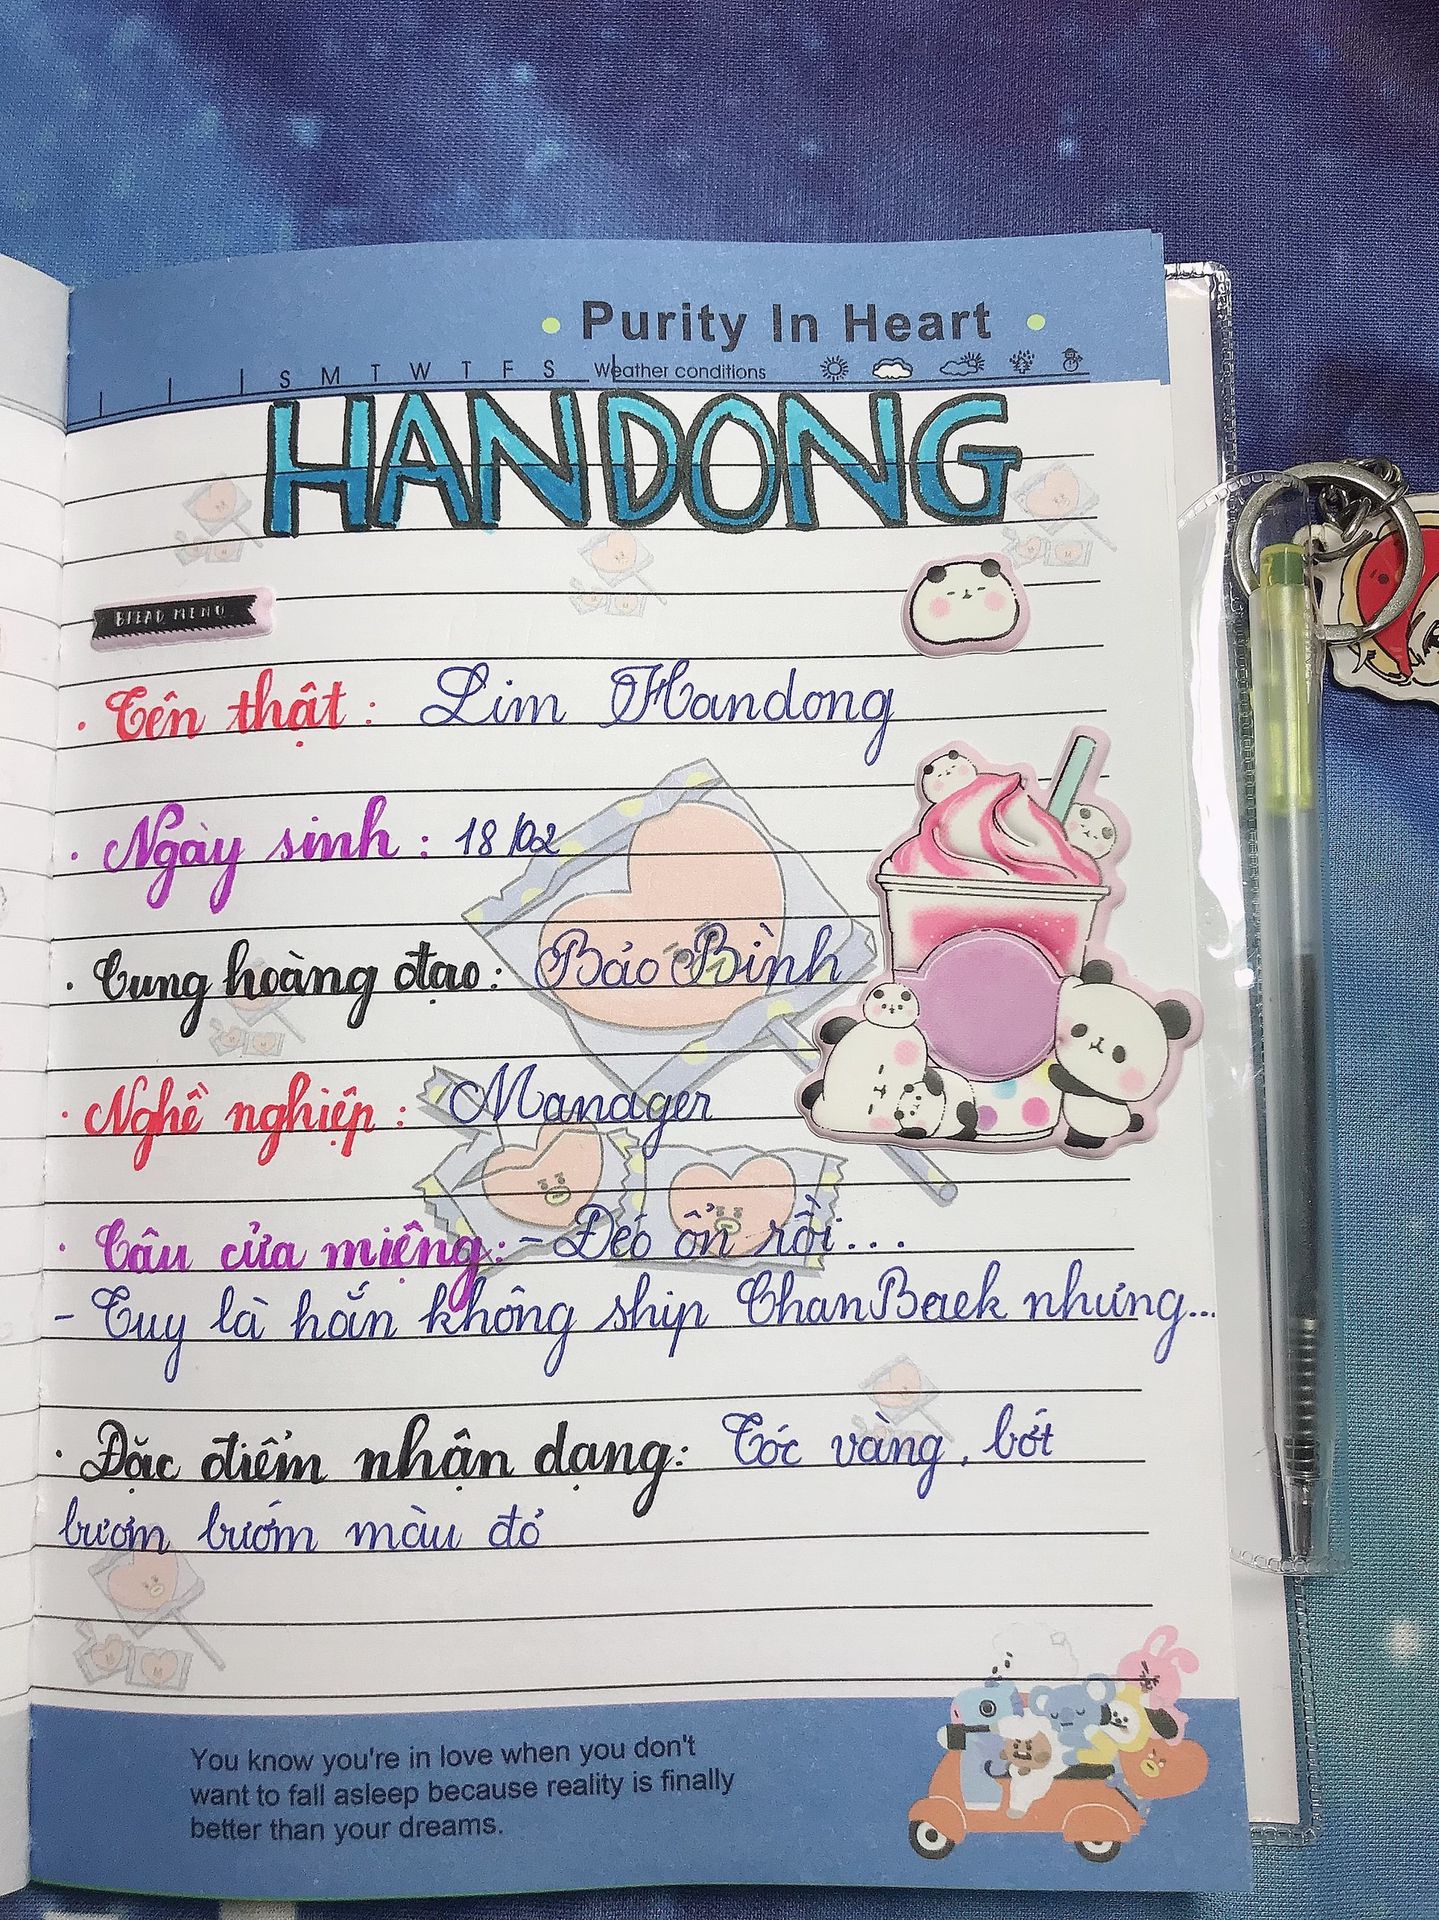 Purity In Heart
S M T W T F S Weather conditions
HANDONG
BREAD MENU
· Tên thật : Lim Handong
· Ngày sinh : 18/02
· Cung hoàng đạo : Bảo Bình
· Nghề nghiệp : Manager
· Câu cửa miệng : - Đéo ổn rồi...
- Tuy là hắn không ship ChanBaek nhưng...
· Đặc điểm nhận dạng : Tóc vàng, bớt
bươm bướm màu đỏ
You know you're in love when you don't
want to fall asleep because reality is finally
better than your dreams.